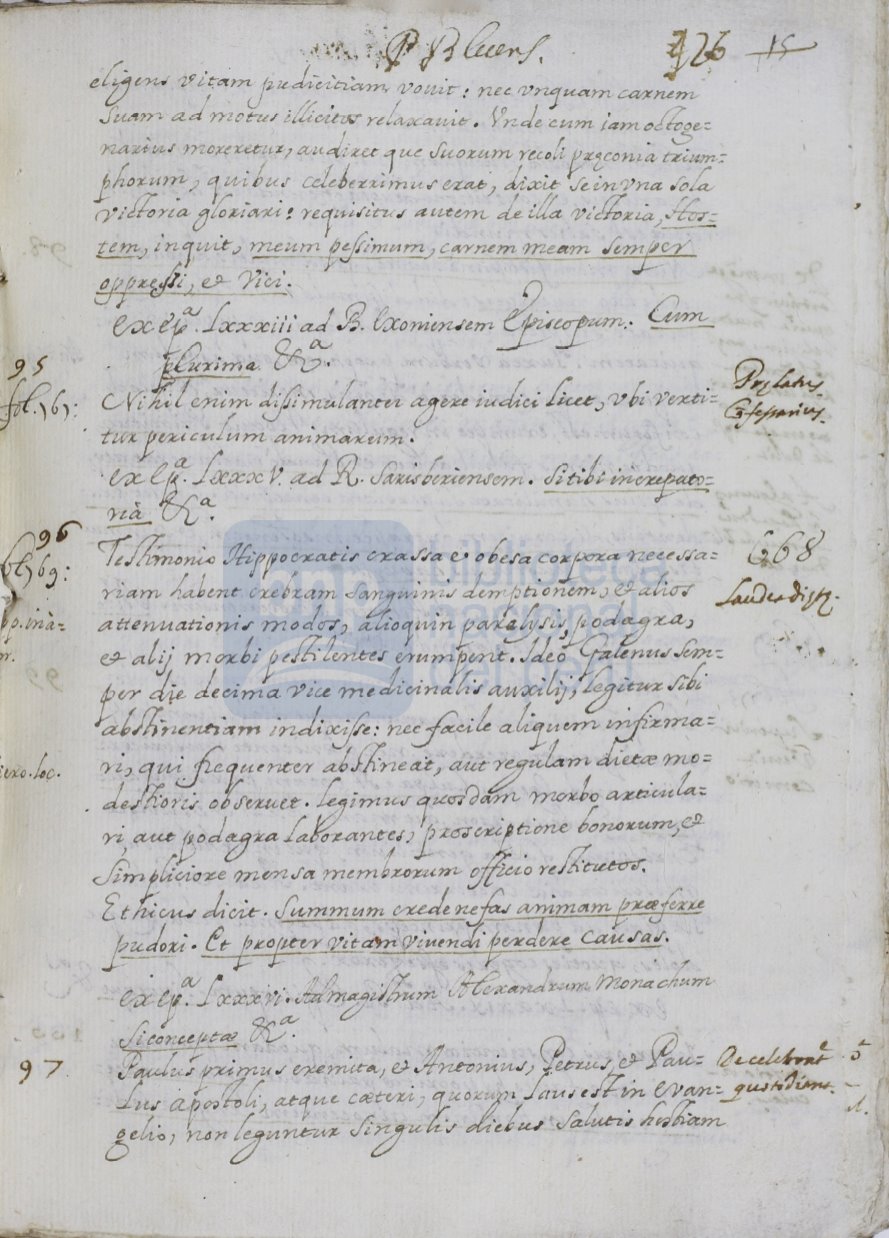 P Blesens.
126 15
eligens vitam pudicitiam vouit: nec vnquam carnem
suam ad motus illicitos relaxauit. Vnde cum iam octoge=
narius moreretur, audiret que suorum recoli pręconia trium=
phorum, quibus celeberrimus erat, dixit se in vna sola
victoria gloriari: requisitus autem de illa victoria, Hos=
tem, inquit, meum pessimum, carnem meam semper
oppressi, et vici.
ex epª. Lxxxiii ad B. exoniensem Episcopum. Cum
plurima &ª.
95
fol. 161:
Nihil enim dissimulanter agere iudici licet, vbi verti=
tur periculum animarum.
Pręlatus.
Cōfessarius.
ex epª. Lxxxv. ad R. Sarisberiensem. si tibi increpato=
ria &ª.
96
169:
Testimonio Hippocratis crassa et obesa corpora necessa=
riam habent crebram sanguinis demptionem, et alios
attenuationis modos, alioquin paralysis, podagra,
et alij morbi pestilentes erumpent. Ideo Galenus sem=
per die decima vice medicinalis auxilij, legitur sibi
abstinentiam indixisse: nec facile aliquem infirma=
ri, qui frequenter abstineat, aut regulam dietæ mo=
destioris obseruet. Legimus quosdam morbo articula=
ri, aut podagra laborantes, proscriptione bonorum, et
simpliciore mensa membrorum officio restitutos.
668
Ethicus dicit. Summum crede nefas animam præferre
pudori. Et propter vitam viuendi perdere causas.
ex epª. Lxxxvi. Ad magistrum Alexandrum Monachum
si conceptæ &ª.
97
Paulus primus eremita, et Antonius, Petrus, et Pau=
lus apostoli, atque cæteri, quorum laus est in evan=
gelio, non leguntur singulis diebus salutis hostiam
biblioteca
nacional
del perú